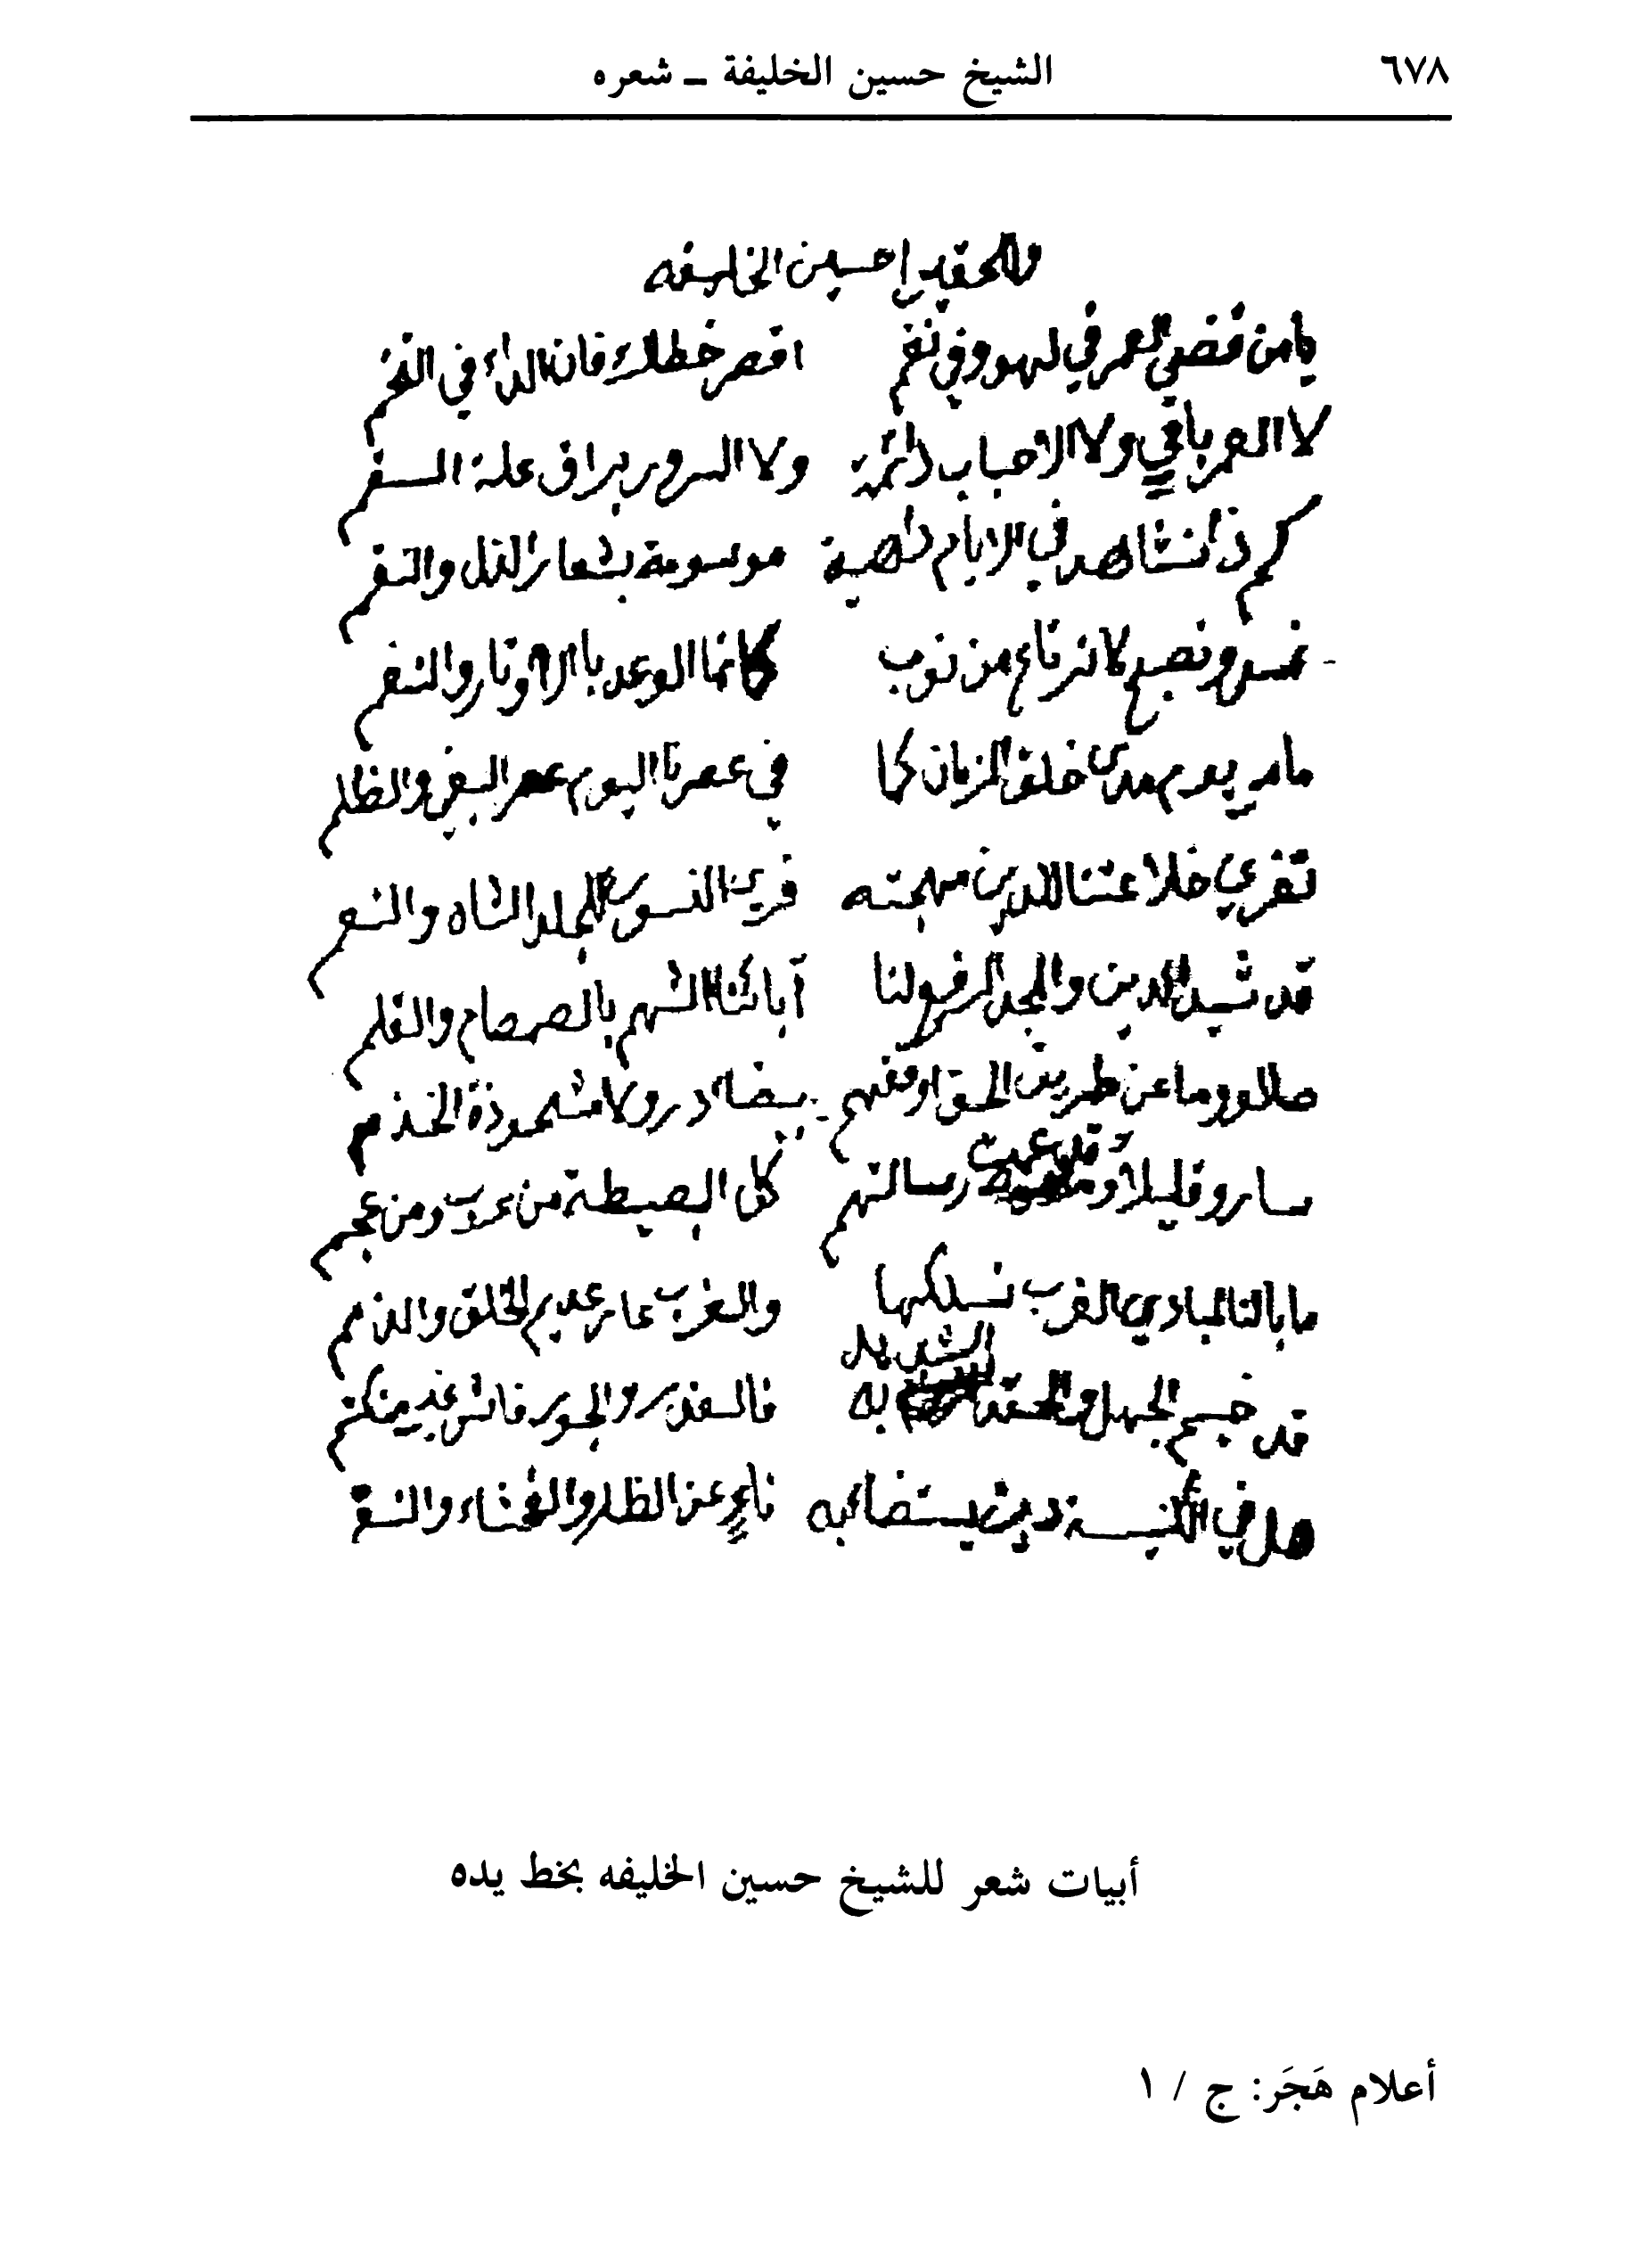 ٦٧٨
الشيخ حسين الخليفة ـ شعره
وللحقير حسين الخليفه
يا من قضى العمر في لهو وفي نغم اقصر خطاك فان الداء في النغم
لا العمر باقي ولا الاحباب دائمة ولا السرور براق علة السقم
كم ذا نشاهد في الايام داهية موسومة بشعار الذل والنقم
نمسي ونصبح لا نرتاع من نوب كانما الوعد بالاوتار والنغم
ما لم يدم مدى خلق الزمان كما في عصرنا اليوم عصر البغي والظلم
تفري خلاعتنا للدين مهجته فري النسور لجلد الشاه والنعم
قد شيد الدين والمجد الرفيع لنا آبائنا الشهم بالصمصام والقلم
صالوا وما عن طريق الحق اوقفهم بيضاء درو لا مشحوذة الخذم
ساروا قليلا وقد عمت رسالتهم كل البصيطة من عرب ومن عجم
ما بالنا لمبادي الغرب نسلكها والغرب عار عديم الخلق والذمم
قد خيم الجهل والحقد الشديد به فالغدر والجور فاش غير منكتم
هل في الكنيسة دين يستضاء به ناءٍ عن الظلم والفحشاء والنقم
أبيات شعر للشيخ حسين الخليفه بخط يده
أعلام هَجَر: ج / ١